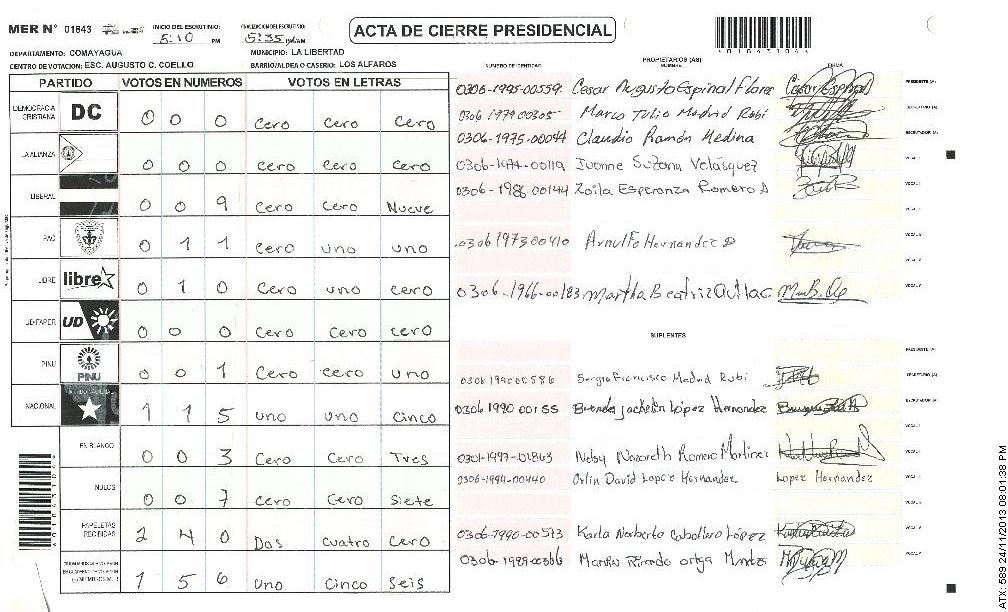 MER N° 01843
INICIO DEL ESCRUTINIO:
5:10 PM
FINALIZACION DEL ESCRUTINIO:
5:35 PM/AM
ACTA DE CIERRE PRESIDENCIAL
DEPARTAMENTO: COMAYAGUA
MUNICIPIO: LA LIBERTAD
CENTRO DE VOTACION: ESC. AUGUSTO C. COELLO
BARRIO/ALDEA O CASERIO: LOS ALFAROS
PARTIDO VOTOS EN NUMEROS VOTOS EN LETRAS
DEMOCRACIA CRISTIANA DC 0 0 0 cero cero cero
LA ALIANZA 0 0 0 cero cero cero
LIBERAL 0 0 9 cero cero Nueve
PAC 0 1 1 cero uno uno
LIBRE libre 0 1 0 cero uno cero
UD-FAPER UD 0 0 0 cero cero cero
PINU PINU 0 0 1 cero cero uno
NACIONAL 1 1 5 uno uno cinco
EN BLANCO 0 0 3 cero cero Tres
NULOS 0 0 7 cero cero Siete
PAPELETAS RECIBIDAS 2 4 0 Dos cuatro cero
1 5 6 uno cinco seis
NUMERO DE IDENTIDAD
PROPIETARIOS (AS)
NOMBRE
FIRMA
0306-1995-00559 Cesar Augusto Espinal Flores PRESIDENTE (A)
0306 1979 00305 Marco Tulio Madrid Rubi SECRETARIO (A)
0306-1975-00044 Claudio Ramón Medina ESCRUTADOR (A)
0306-1974-00119 Ivonne Suzana Velásquez VOCAL I
0306-1986 00144 Zoila Esperanza Romero
0306 1973 00410 Arnulfo Hernandez
0306-1966-00183 Martha Beatriz
SUPLENTES
PRESIDENTE (A)
0306 1990 00586 Sergio Francisco Madrid Rubi SECRETARIO (A)
0306 1990 00155 Brenda Jackelin López Hernandez ESCRUTADOR (A)
0301-1997-01843 Neby Nazareth Romero Martinez
0306-1994-00440 Orlin David Lopez Hernandez Lopez Hernandez
0306-1990-00573 Karla Norberta Caballero López
0306-1989-00366 Ricardo
ATX: 589 24/11/2013 08:01:38 PM